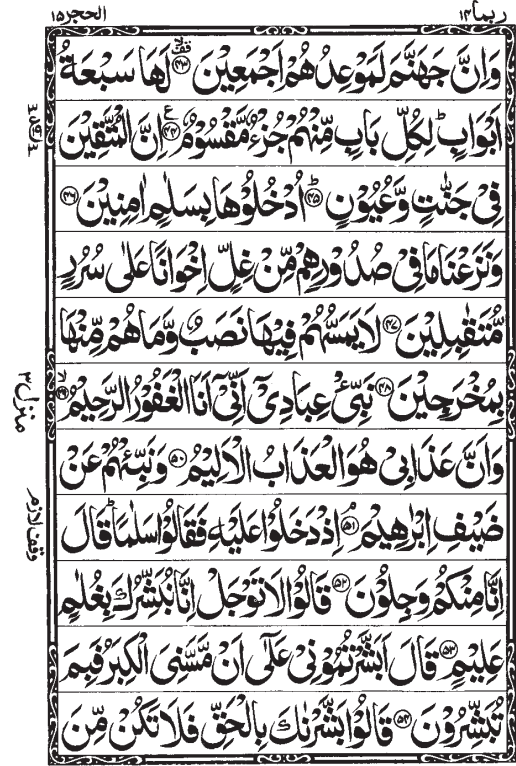 ربما ١٤
الحجر ١٥
وَاِنَّ جَهَنَّمَ لَمَوْعِدُهُمْ اَجْمَعِيْنَ ۙ۝۴۳ قف لَهَا سَبْعَةُ
اَبْوَابٍ ؕ لِكُلِّ بَابٍ مِّنْهُمْ جُزْءٌ مَّقْسُوْمٌ ۝۴۴ ع اِنَّ الْمُتَّقِيْنَ
فِيْ جَنّٰتٍ وَّعُيُوْنٍ ؕ۝۴۵ اُدْخُلُوْهَا بِسَلٰمٍ اٰمِنِيْنَ ۝۴۶
وَنَزَعْنَا مَا فِيْ صُدُوْرِهِمْ مِّنْ غِلٍّ اِخْوَانًا عَلٰى سُرُرٍ
مُّتَقٰبِلِيْنَ ۝۴۷ لَا يَمَسُّهُمْ فِيْهَا نَصَبٌ وَّمَا هُمْ مِّنْهَا
بِمُخْرَجِيْنَ ۝۴۸ نَبِّئْ عِبَادِيْۤ اَنِّيْۤ اَنَا الْغَفُوْرُ الرَّحِيْمُ ۙ۝۴۹
وَاَنَّ عَذَابِيْ هُوَ الْعَذَابُ الْاَلِيْمُ ۝۵۰ وَنَبِّئْهُمْ عَنْ
ضَيْفِ اِبْرٰهِيْمَ ۘ۝۵۱ اِذْ دَخَلُوْا عَلَيْهِ فَقَالُوْا سَلٰمًا ؕ قَالَ
اِنَّا مِنْكُمْ وَجِلُوْنَ ۝۵۲ قَالُوْا لَا تَوْجَلْ اِنَّا نُبَشِّرُكَ بِغُلٰمٍ
عَلِيْمٍ ۝۵۳ قَالَ اَبَشَّرْتُمُوْنِيْ عَلٰۤى اَنْ مَّسَّنِيَ الْكِبَرُ فَبِمَ
تُبَشِّرُوْنَ ۝۵۴ قَالُوْا بَشَّرْنٰكَ بِالْحَقِّ فَلَا تَكُنْ مِّنَ
منزل ٣
وقف لازم